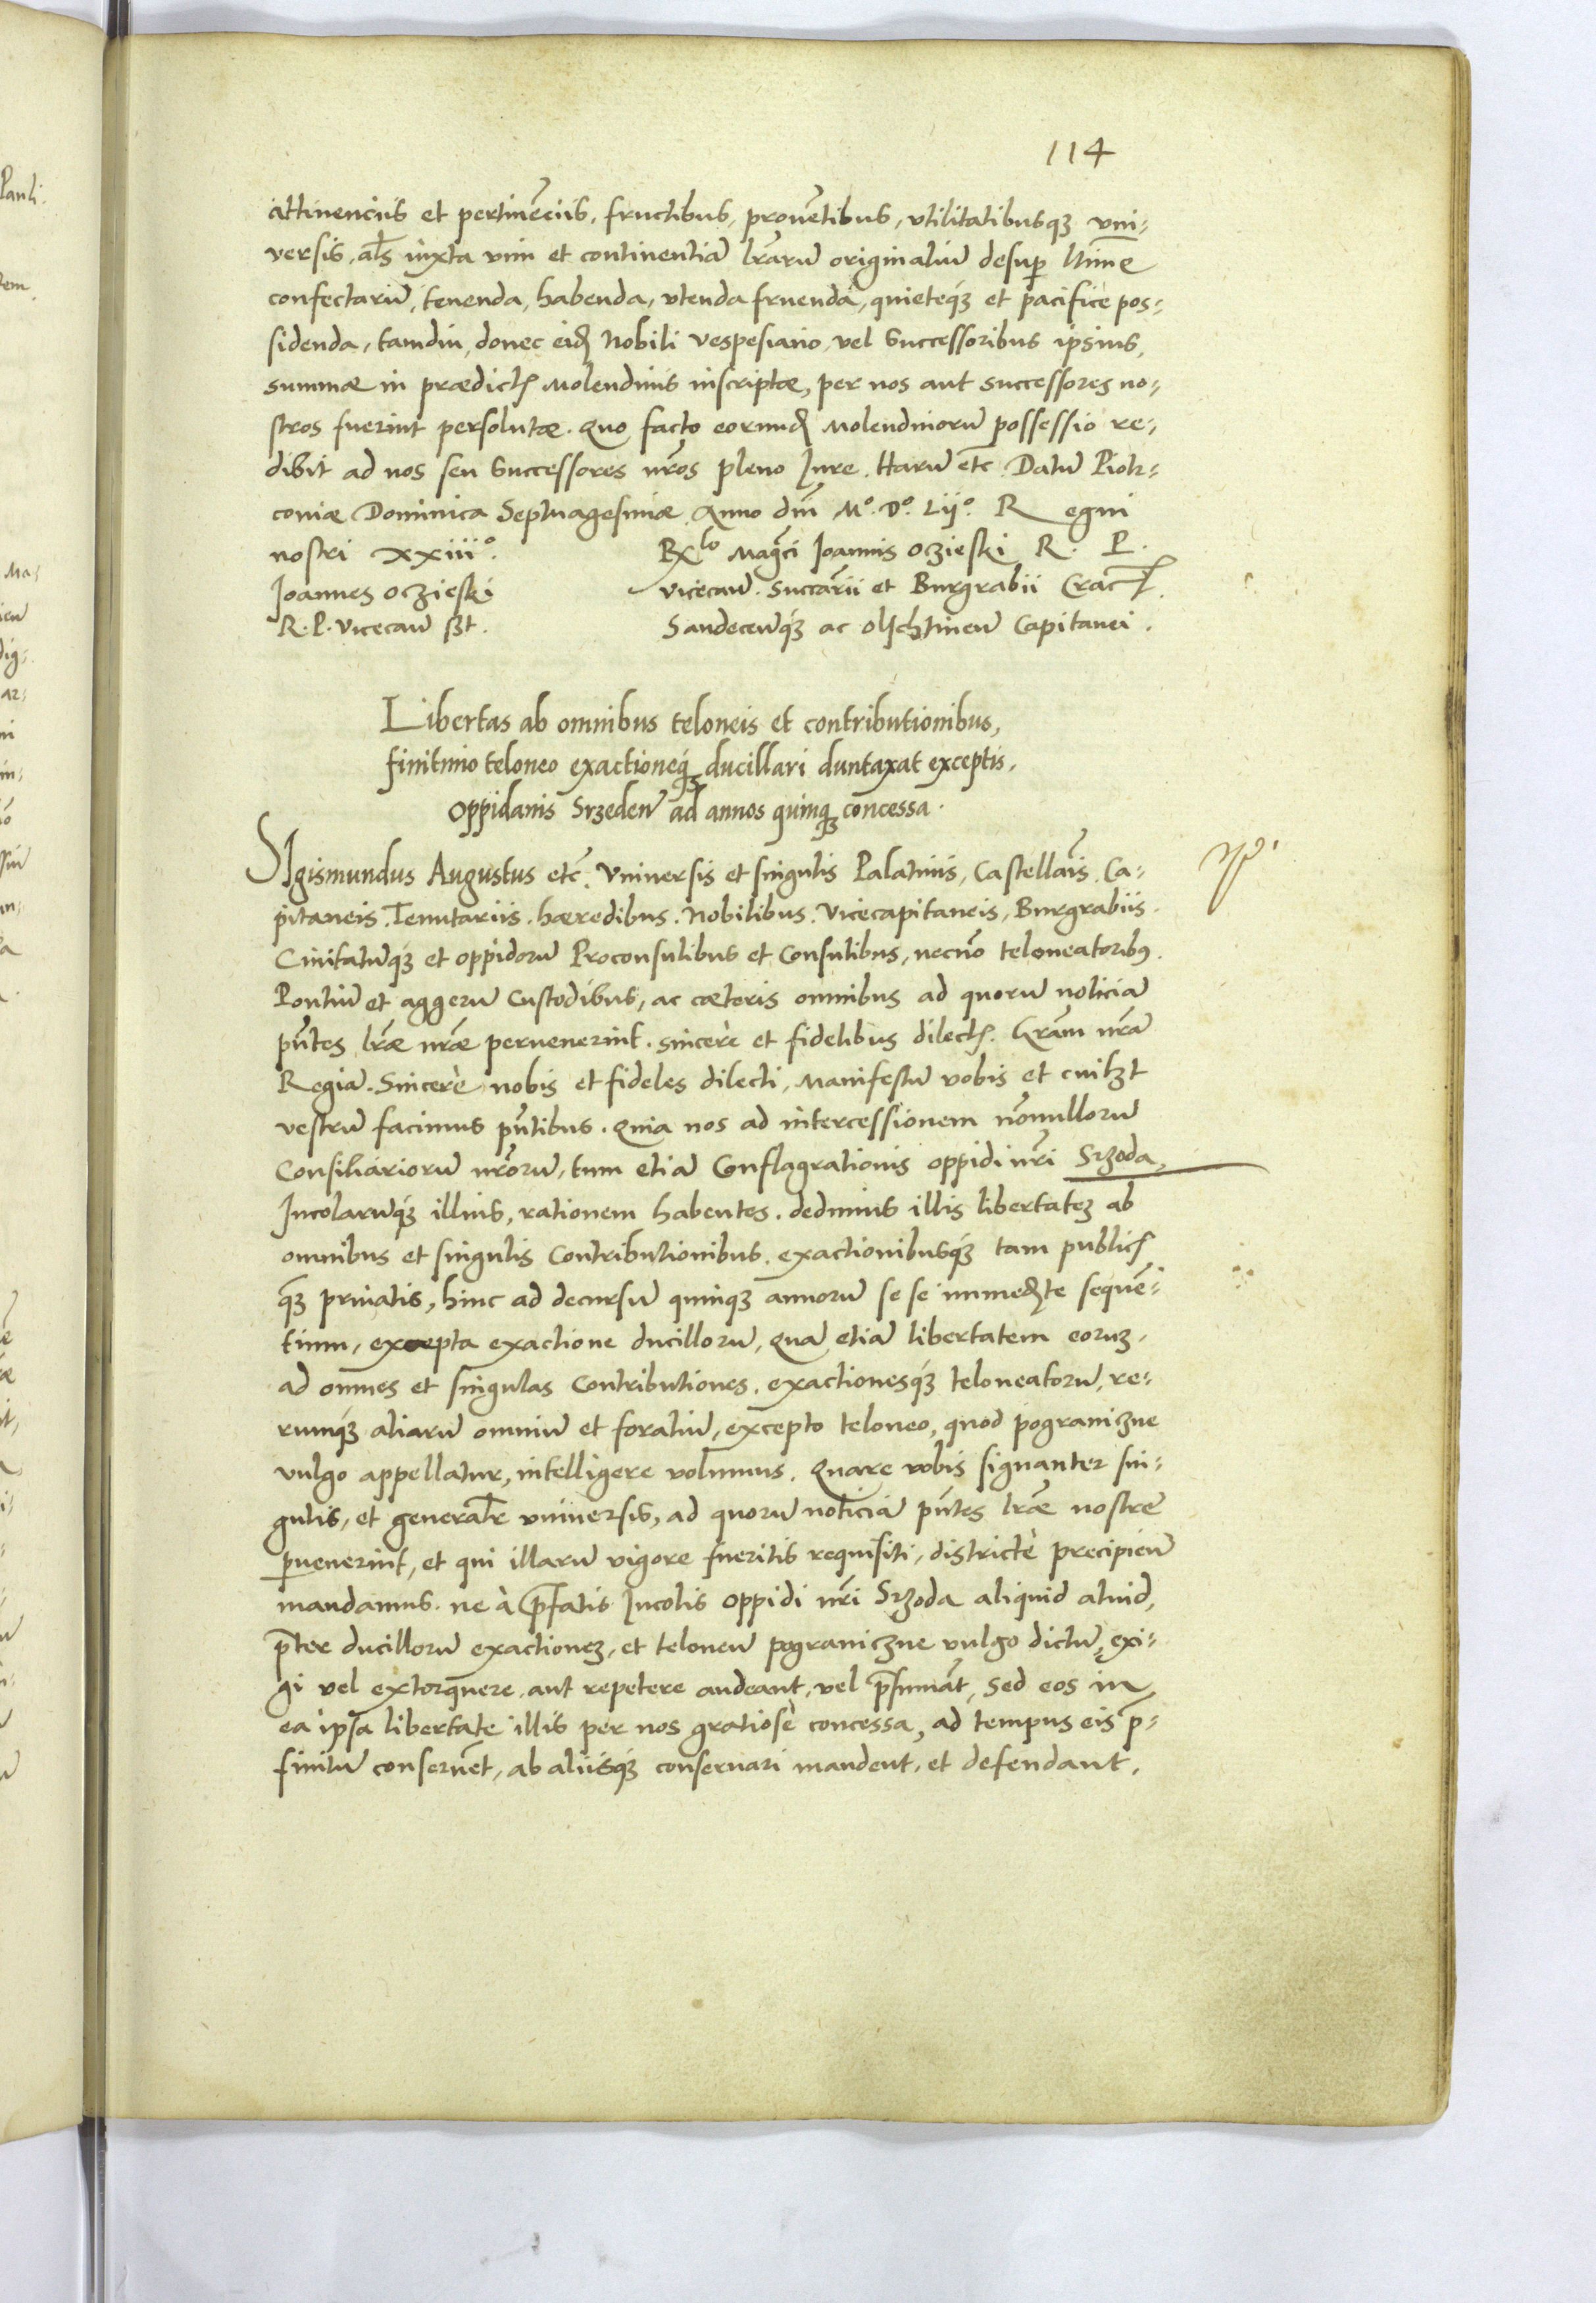 114
attinenciis et pertinẽciis, fructibus, prouẽtibus, vtilitatibusqȝ vni-
versis, al̃s iuxta vim et continentiã lr̃arũ originaliũ desuꝑ
confectarũ, tenenda, habenda, vtenda fruenda, quieteqȝ et pacifice pos-
sidenda, tamdiu, donec eidꝫ Nobili Vespesiano, vel Successoribus ipsius,
summæ in prædictꝭ Molendinis inscriptæ, per nos aut successores no-
stros fuerint persolutæ. Quo facto eorundꝫ Molendinorũ possessio re-
dibit ad nos seu Successores nr̃os pleno Iure. Harũ etc̃ Datũ Piotr-
coniæ Dominica Septuagesimæ Anno dn̄i M°. D°. Lij°. Regni
nostri xxiii°.
Rl̃o Magc̃i Ioannis Oczieski R. P.
Ioannes Oczieski
Vicecan̄. Succarii et Burgrabii Crac̃.
R. P. Vicecan̄ sȝt.
Sandecen̄qȝ ac Olschtinen̄ Capitanei.
Libertas ab omnibus teloneis et contributionibus,
finitimo teloneo exactioneqȝ ducillari duntaxat exceptis,
Oppidanis Srzeden̄ ad annos quinqȝ concessa.
SIgismundus Augustus etc̃. Vniversis et singulis Palatinis, Castellãis, Ca-
pitaneis. Tenutariis. hæredibus. Nobilibus. Vicecapitaneis, Burgrabiis.
Ciuitatũqȝ et oppidorũ Proconsulibus et Consulibus, necnõ teloneatoribꝰ.
Pontiũ et aggerũ Custodibus, ac cæteris omnibus ad quorũ noticiã
pñtes lr̃æ nr̃æ pervenerint. sincerè et fidelibus dilectꝭ. Gr̃am nr̃ã
Regiã. Sincerè nobis et fideles dilecti, Manifestũ vobis et cuilȝt
vestrũ facimus pñtibus. Quia nos ad intercessionem nõnullorũ
Consiliariorũ nr̃orũ, tum etiã Conflagrationis oppidi nr̃i Srzoda,
Incolarũqȝ illius, rationem habentes. dedimus illis libertatẽ ab
omnibus et singulis Contributionibus. exactionibusqȝ tam publicꝭ
qȝ priuatis, hinc ad decursũ quinqȝ annorũ se se immedꝫte sequẽ-
tium, excepta exactione ducillorũ, Quã etiã libertatem eorũ,
ad omnes et singulas Contributiones. exactionesqȝ teloneatorũ, re-
rumqȝ aliarũ omniũ et foraliũ, excepto teloneo, quod pograniczne
vulgo appellatur, intelligere volumus. Quare vobis signanter sin-
gulis, et general̃r vniuersis, ad quorũ noticiã pñtes lr̃æ nostre
ꝑuenerint, et qui illarũ vigore fueritis requisiti, districtè precipien̄
mandamus. ne à p̃fatis Incolis oppidi nr̃i Srzoda aliquid aliud,
p̃ter ducillorũ exactionẽ, et teloneũ pograniczne vulgo dictũ, exi-
gi vel extorquere, aut repetere audeant, vel p̃sumãt, sed eos in
ea ipsa libertate illis per nos gratiosè concessa, ad tempus eis p̃-
finitũ conseruẽt, ab aliisqȝ conseruari mandent, et defendant,